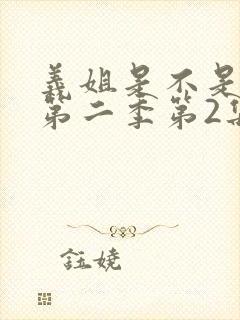 義姐是不是
第二季第2集
钰娆